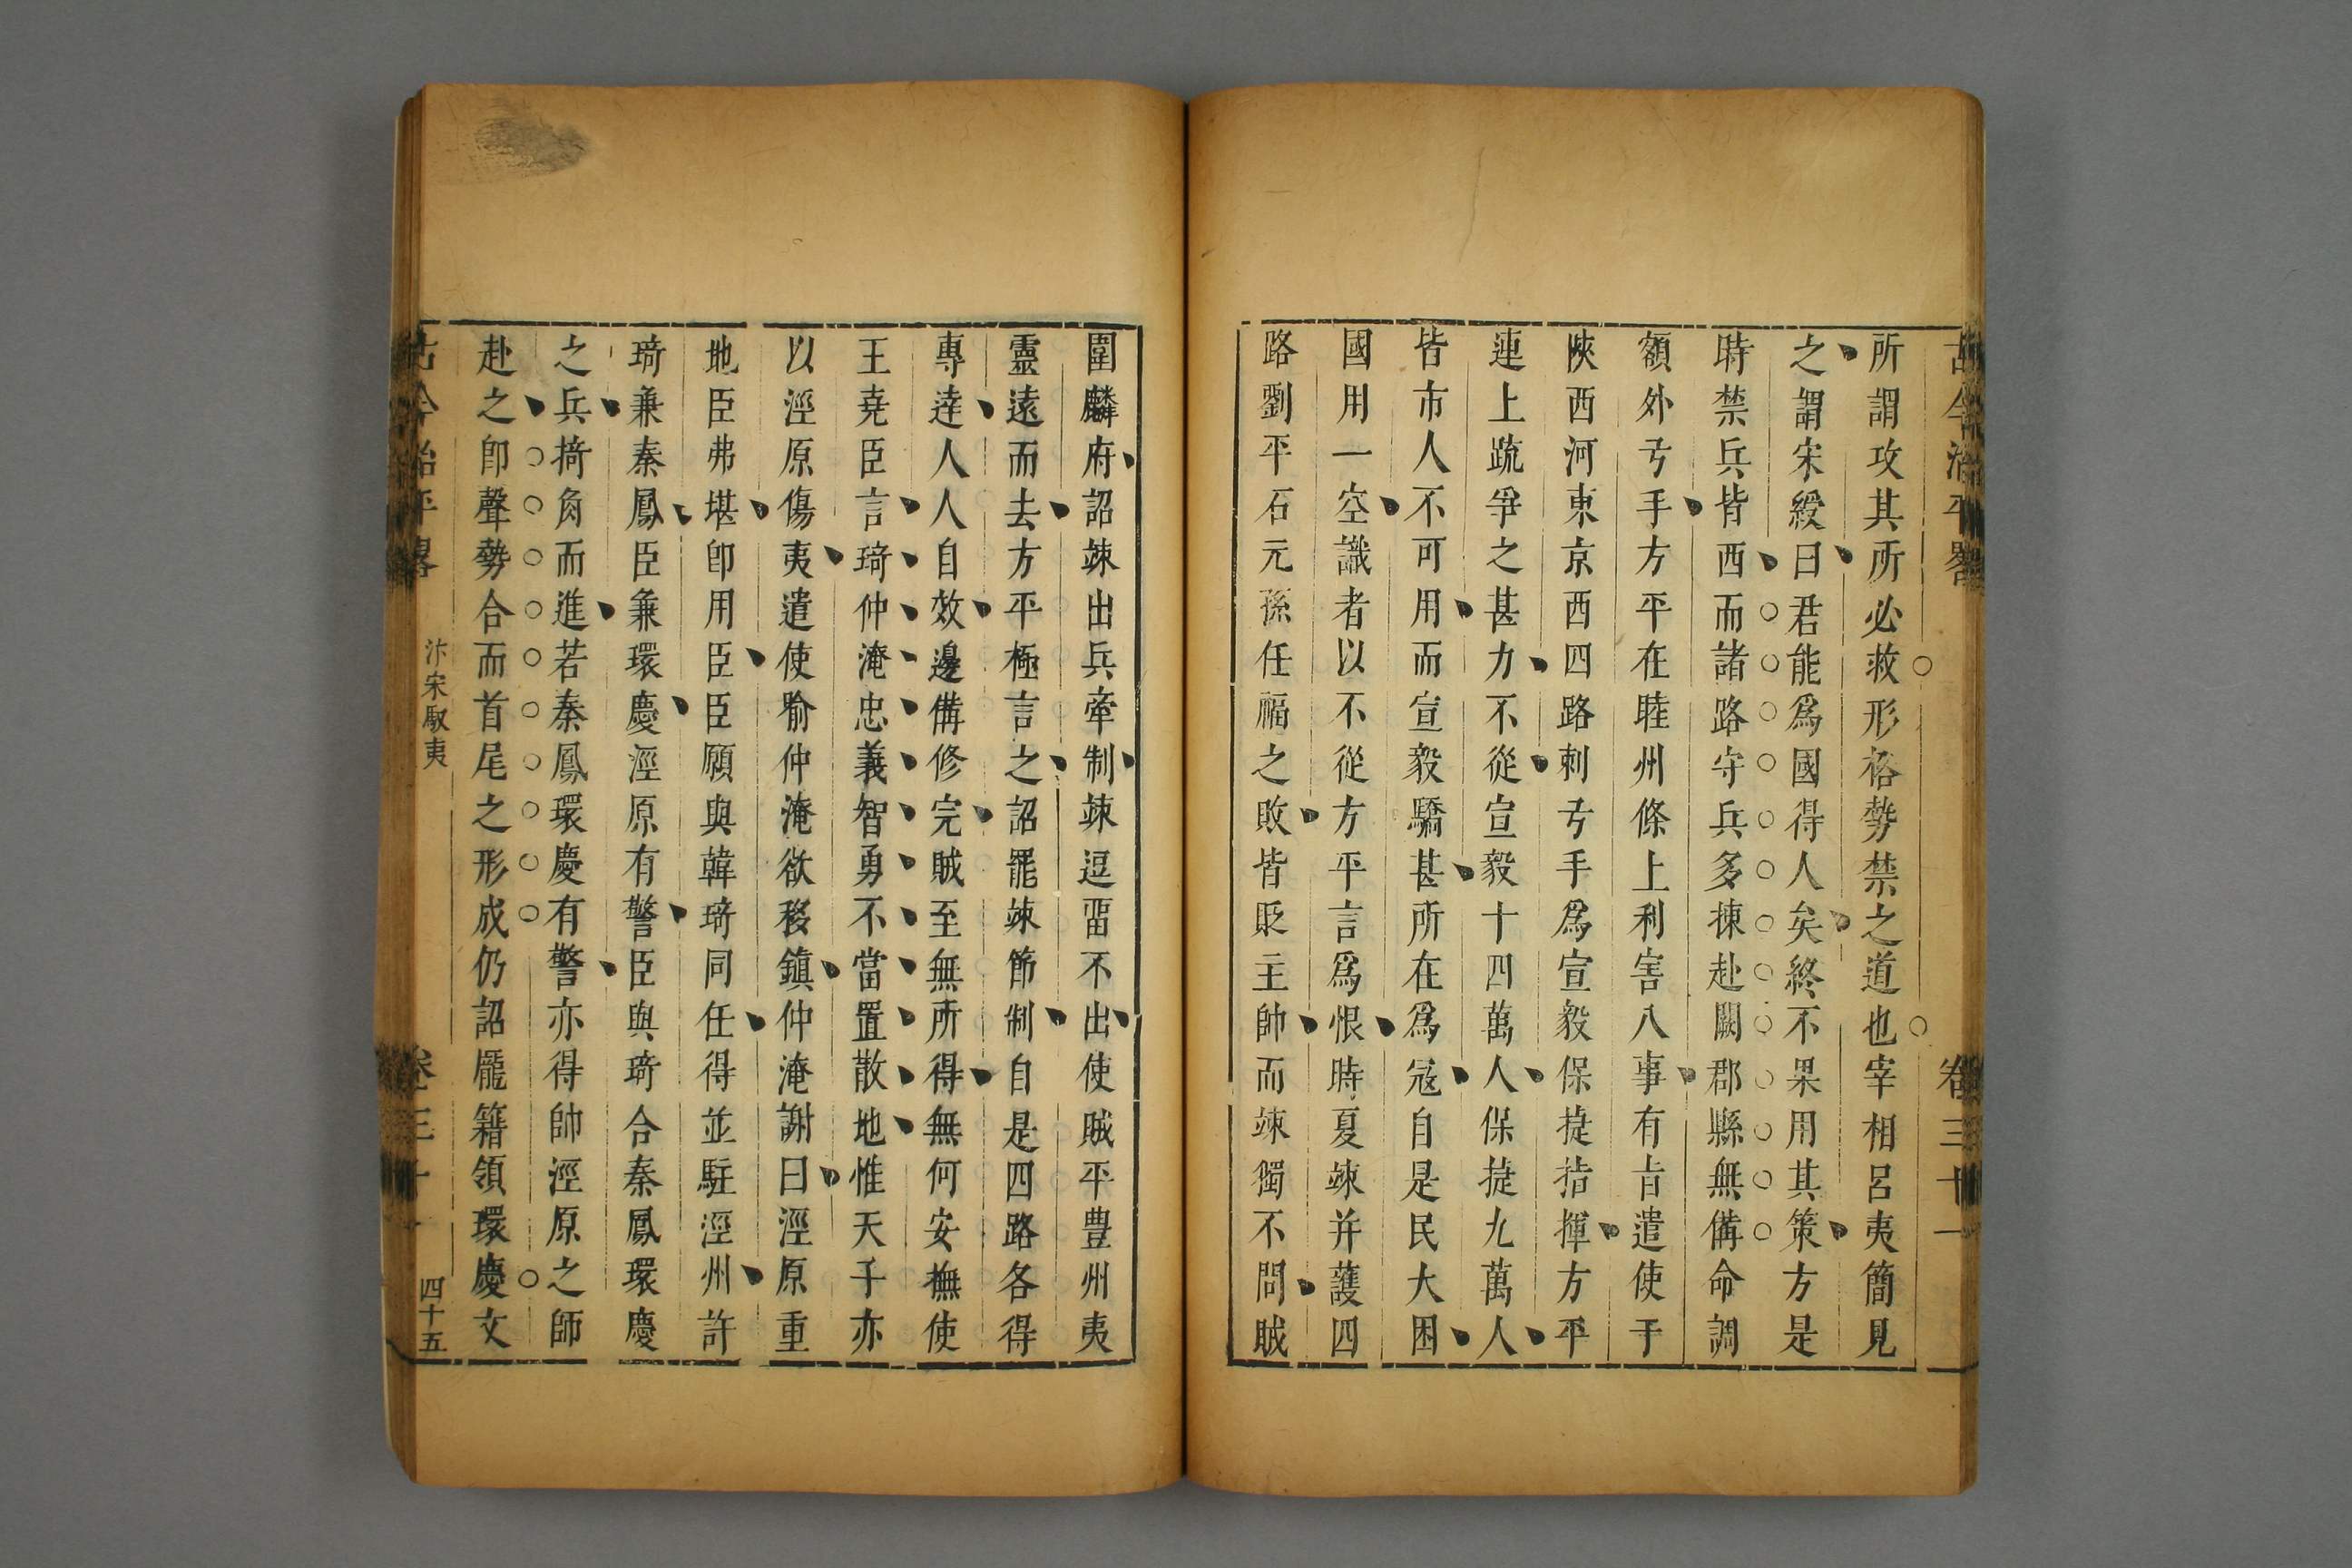 古今治平畧
卷三十一
所謂攻其所必救形格勢禁之道也宰相呂夷簡見
之謂宋綬曰君能爲國得人矣終不果用其策方是
時禁兵皆西而諸路守兵多揀赴闕郡縣無備命調
額外弓手方平在睦州條上利害八事有旨遣使于
陜西河東京西四路刺弓手爲宣毅保捷指揮方平
連上疏爭之甚力不從宣毅十四萬人保捷九萬人
皆市人不可用而宣毅驕甚所在爲冦自是民大困
國用一空識者以不從方平言爲恨時夏竦并護四
路劉平石元孫任福之敗皆貶主帥而竦獨不問賊
圍麟府詔竦出兵牽制竦逗畱不出使賊平豊州夷
靈遠而去方平極言之詔罷竦節制自是四路各得
專達人人自效邊備修完賊至無所得無何安撫使
王堯臣言琦仲淹忠義智勇不當置散地惟天子亦
以涇原傷夷遣使喻仲淹欲移鎮仲淹謝曰涇原重
地臣弗堪卽用臣臣願與韓琦同任得並駐涇州許
琦兼秦鳳臣兼環慶涇原有警臣與琦合秦鳳環慶
之兵掎角而進若秦鳳環慶有警亦得帥涇原之師
赴之卽聲勢合而首尾之形成仍詔龎籍領環慶文
古今治平畧
汴宋馭夷
卷三十一
四十五